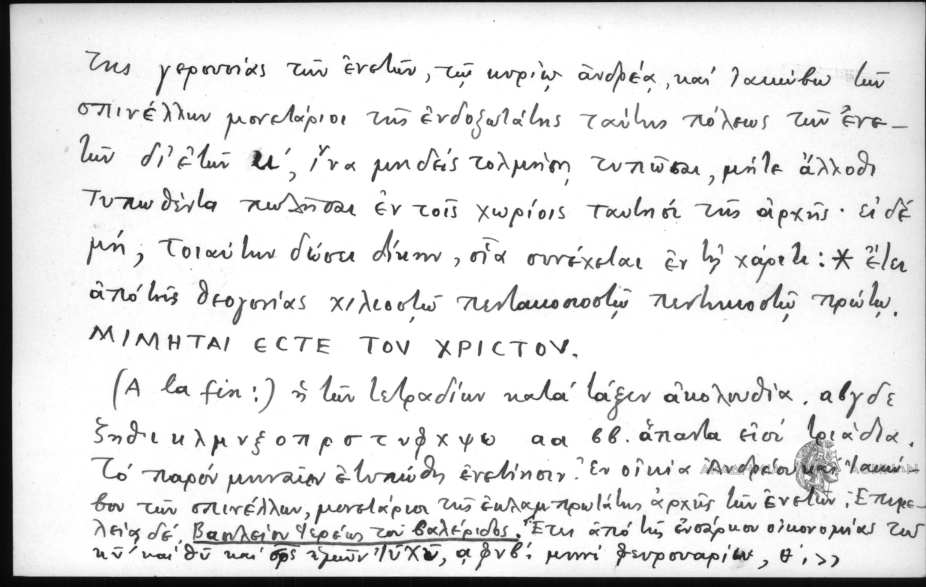 τῆς γερουσίας τῶν ἐνετῶν, τῷ κυρίῳ ἀνδρέᾳ, καί ἰακώβω τῶν
σπινέλλων μονετάριοι τῆς ἐνδοξωτάτης ταύτης πόλεως τῶν ἐνε-
τῶν δι' ἐτῶν κ', ἵνα μηδείς τολμήσῃ τυπῶσαι, μήτε ἄλλοθι
τυπωθέντα πωλῆσαι ἐν τοῖς χωρίοις ταυτησί τῆς ἀρχῆς. εἰ δέ
μή, τοιαύτην δώσει δίκην, οἵα συνέχεται ἐν τῇ χάριτι: * ἔτει
ἀπό τῆς θεογονίας χιλιοστῷ πεντακοσιοστῷ πεντηκοστῷ πρώτῳ.
ΜΙΜΗΤΑΙ ЄCΤЄ ΤΟΥ ΧΡΙCΤΟΥ.
(A la fin:) ἡ τῶν τετραδίων κατά τάξιν ἀκολουθία. αβγδε
ζηθικλμνξοπρστυφχψω αα ββ. ἅπαντα εἰσί τριάδια.
Τό παρόν μηναῖον ἐτυπώθη ἐνετίησιν. Ἐν οἰκία Ἀνδρέου καί Ἰακώ-
βου τῶν σπινέλλων, μονετάριοι τῆς ἐκλαμπρωτάτης ἀρχῆς τῶν ἐνετῶν. Ἐπιμε-
λείᾳ δέ, Βασιλείου ἱερέως τοῦ βαλέριδος. Ἔτει ἀπό τῆς ἐνσάρκου οἰκονομίας τοῦ
κῦ καί θῦ καί σρς ἡμῶν ἰῦ χῦ, αφνβ'. μηνί φευρουαρίω, θ'. >>